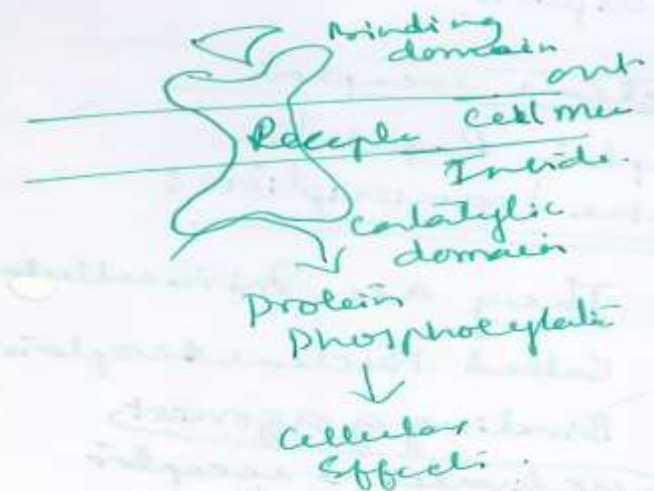 Binding
domain
out
Receptor Cell mem
Inside.
Catalytic
domain
Protein
Phosphorylation
Cellular
Effects.